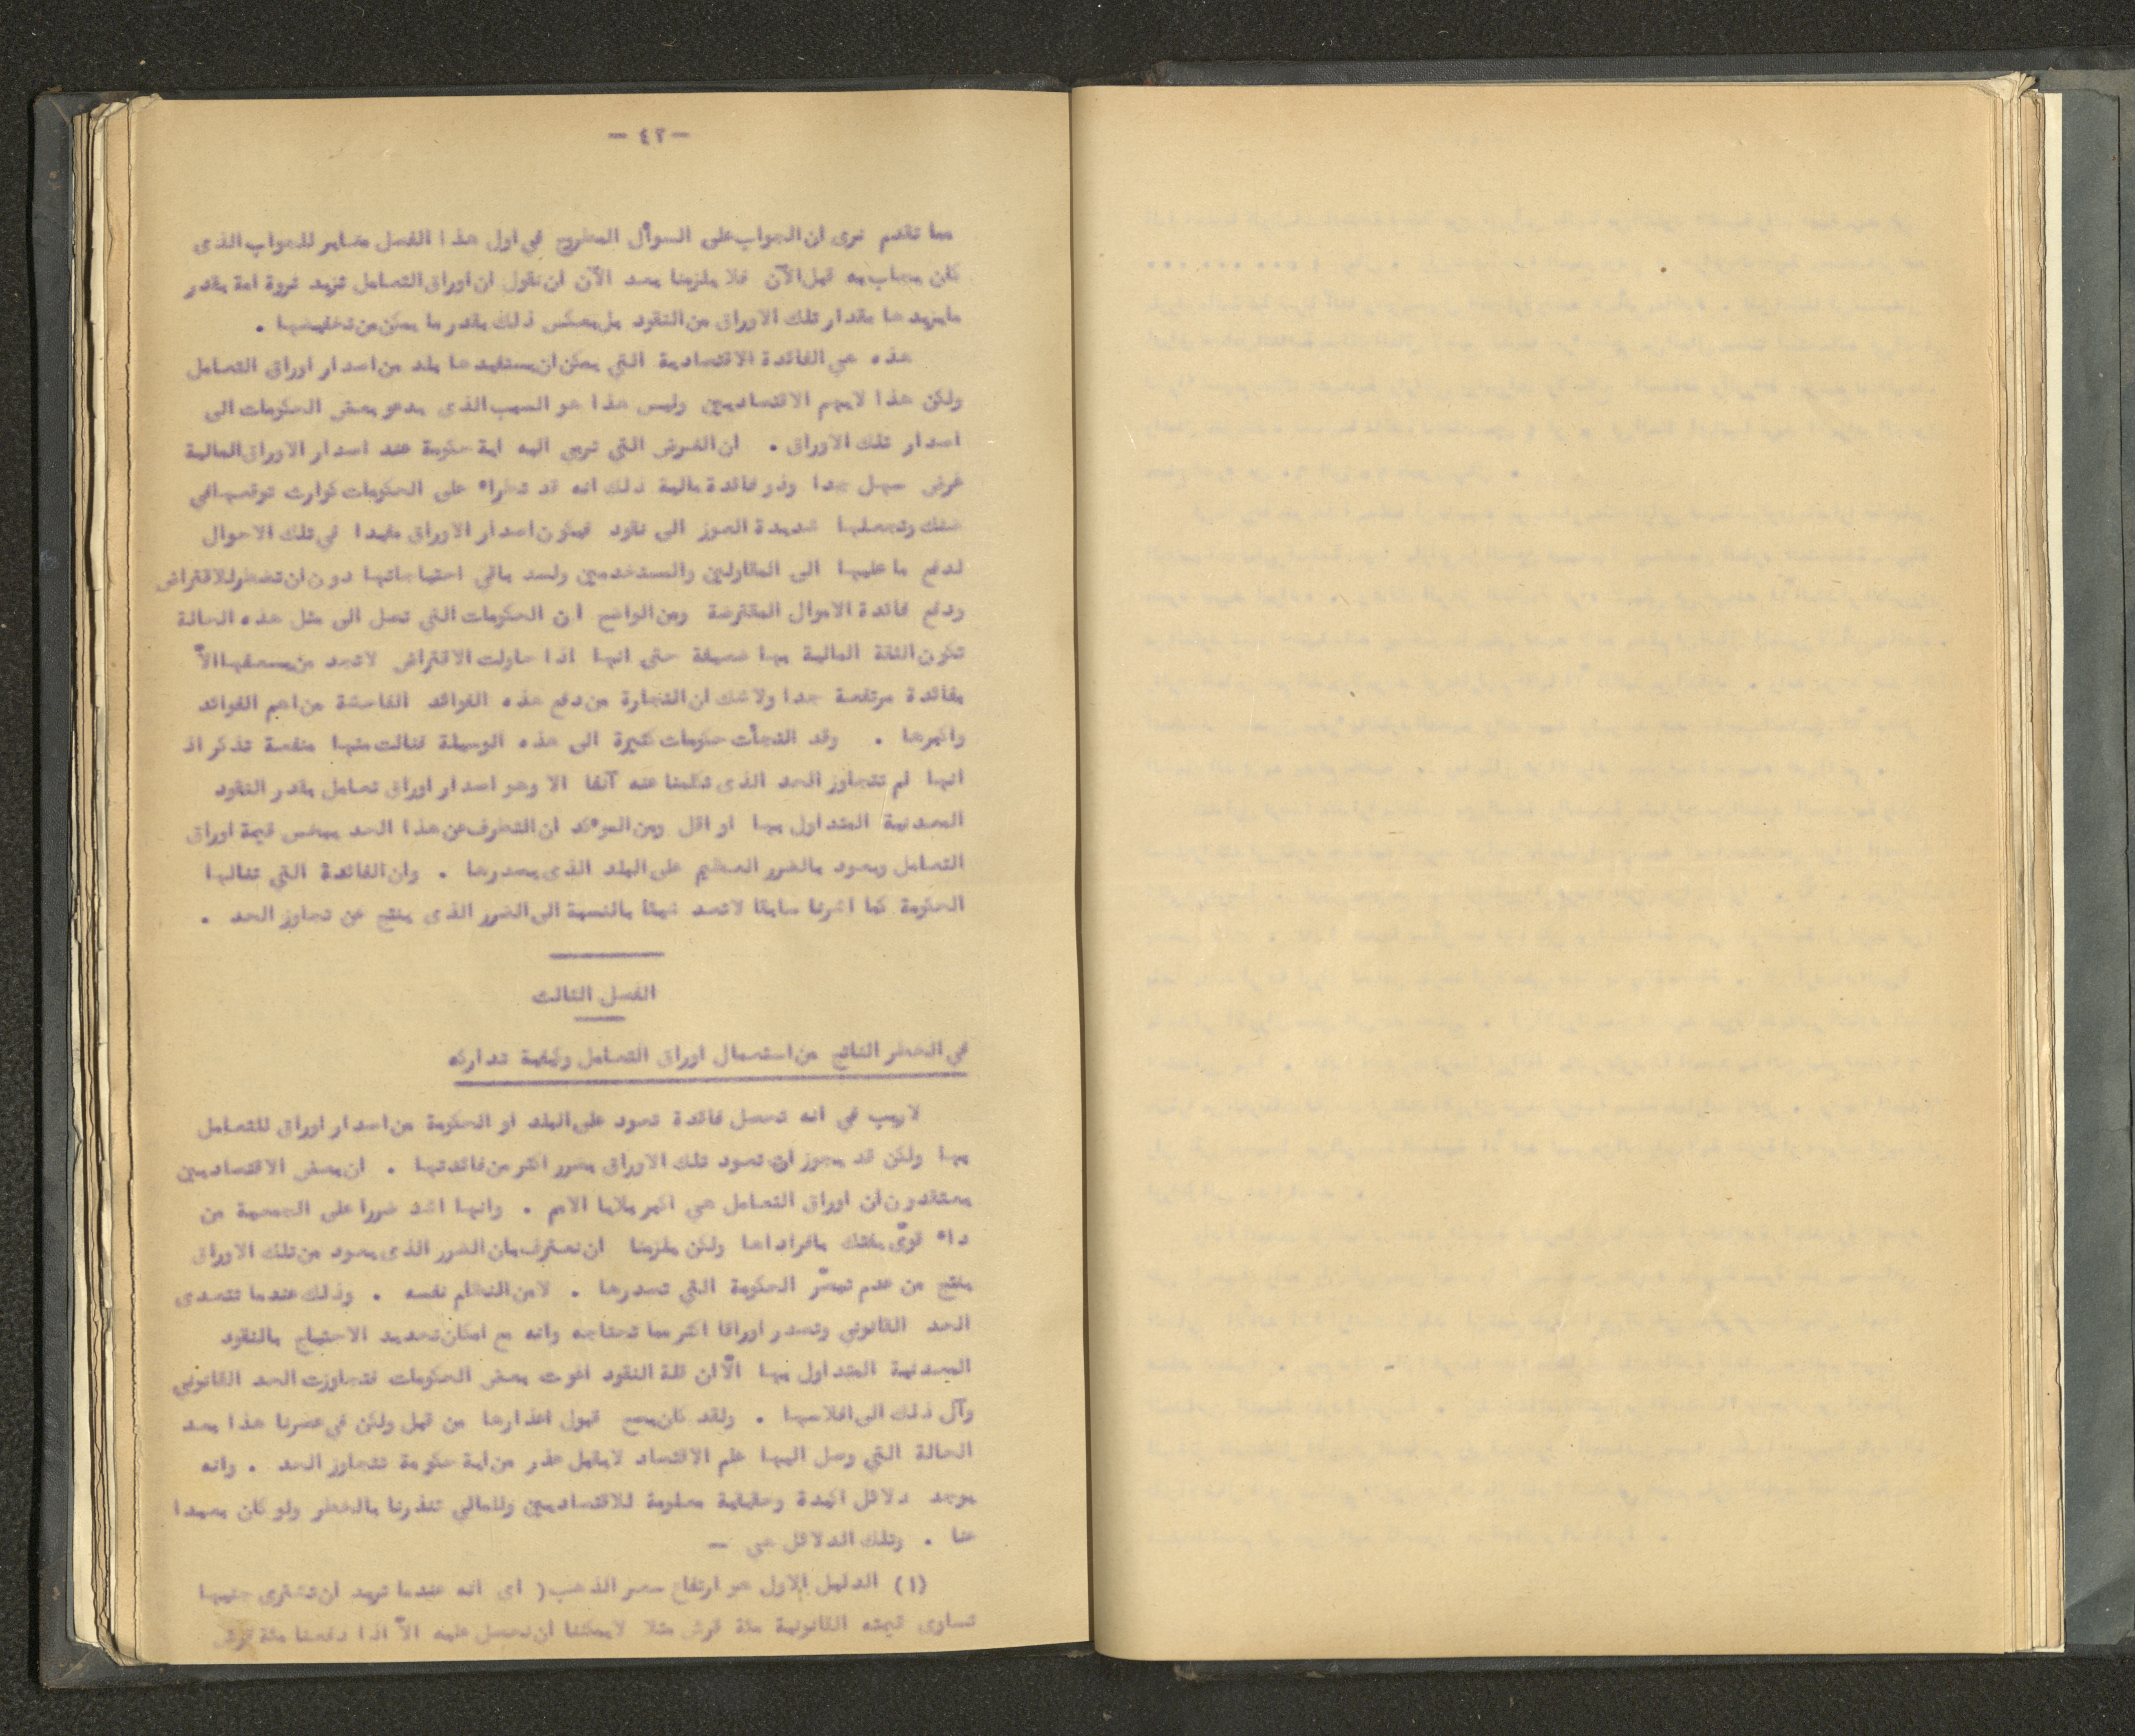 — ٤٢ —
مما تقدم نرى ان الجواب على السوأل المطروح في اول هذا الفصل مغاير للجواب الذى
كان يجاب به قبل الآن فلا يلزمنا بعد الآن ان نقول ان اوراق التعامل تزيد ثروة امة بقدر
مايزيدها مقدار تلك الاوراق من النقود بل بعكس ذلك بقدر ما يمكن من تخفيضها .
هذه هي الفائدة الاقتصادية التي يمكن ان يستفيدها بلد من اصدار اوراق التعامل
ولكن هذا لايهم الاقتصاديين وليس هذا هو السبب الذى يدعو بعض الحكومات الى
اصدار تلك الاوراق . ان الغرض التي ترمي اليه اية حكومة عند اصدار الاوراق المالية
غرض سهل جدا وذو فائدة مالية ذلك انه قد تطراء على الحكومات كوارث توقعها في
ضنك وتجعلها شديدة العوز الى نقود فيكون اصدار الاوراق مفيدا في تلك الاحوال
لدفع ما عليها الى المقاولين والمستخدمين ولسد باقي احتياجاتها دون ان تضطر للاقتراض
ودفع فائدة الاموال المقترضة ومن الواضح ان الحكومات التي تصل الى مثل هذه الحالة
تكون الثقة المالية بها ضعيفة حتى انها اذا حاولت الاقتراض لاتجد من يسعفها الاّ
بفائدة مرتفعة جدا ولاشك ان النجارة من دفع هذه الفوائد الفاحشة من اهم الفوائد
واكبرها . وقد التجأت حكومات كثيرة الى هذه الوسيلة فنالت منها منفعة تذكر اذ
انها لم تتجاوز الحد الذى تكلمنا عنه آنفا الا وهو اصدار اوراق تعامل بقدر النقود
المعدنية المتداول بها او اقل ومن المؤكد ان التطرف عن هذا الحد يبخس قيمة اوراق
التعامل ويعود بالضرر العظيم على البلد الذى يصدرها . وان الفائدة التي تنالها
الحكومة كما اشرنا سابقا لاتعد شيئا بالنسبة الى الضرر الذى ينتج عن تجاوز الحد .
الفصل الثالث
في الخطر الناتج من استعمال اوراق التعامل وكيفية تداركه
لاريب في انه تحصل فائدة تعود على البلد او الحكومة من اصدار اوراق للتعامل
بها ولكن قد يجوز ان تعود تلك الاوراق بضرر اكثر من فائدتها . ان بعض الاقتصاديين
يعتقدون ان اوراق التعامل هي اكبر بلايا الامم . وانها اشد ضررا على الجمعية من
داء قوىّ يفتك بافرادها ولكن يلزمنا ان نعترف بان الضرر الذى يعود من تلك الاوراق
ينتج من عدم تبصّر الحكومة التي تصدرها . لا من النظام نفسه . وذلك عندما تتعدى
الحد القانوني وتصدر اوراقا اكثر مما تحتاجه وانه مع امكان تحديد الاحتياج بالنقود
المعدنية المتداول بها الّا ان قلة النقود اغوت بعض الحكومات فتجاوزت الحد القانوني
وآل ذلك الى افلاسها . ولقد كان يصح قبول اعذارها من قبل ولكن في عصرنا هذا بعد
الحالة التي وصل اليها علم الاقتصاد لايقبل عذر من اية حكومة تتجاوز الحد . وانه
يوجد دلائل اكيدة وحقيقية معلومة للاقتصاديين وللمالي تنذرنا بالخطر ولو كان بعيدا
عنا . وتلك الدلائل هي —
(١) الدليل الاول هو ارتفاع سعر الذهب ( اى انه عندما نريد ان نشترى جنيها
تساوى قيمته القانونية مئة قرش مثلا لايمكننا ان نحصل عليه الاّ اذا دفعنا مئة قرش